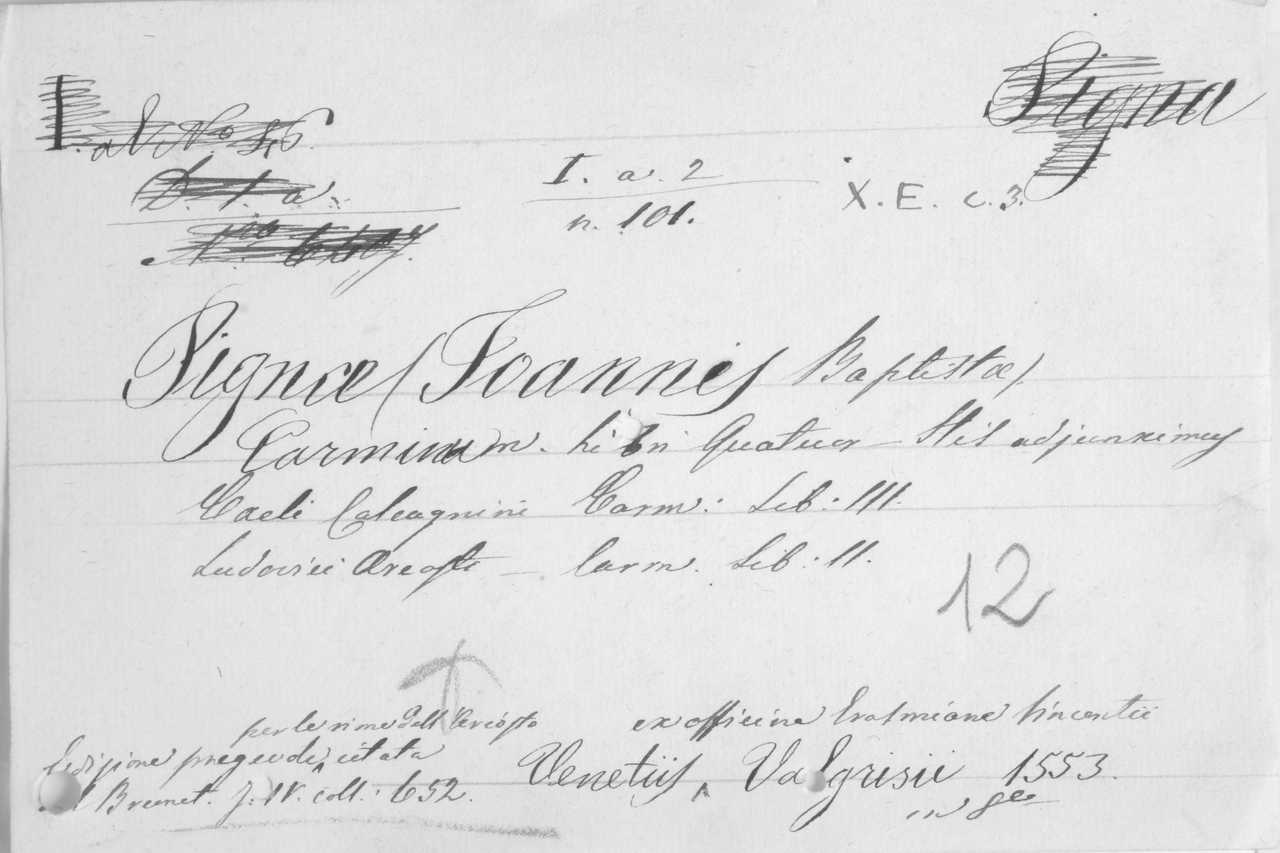 Pigna
I. a. 2
n. 101.
X. E. c. 3.
Pignæ (Joannes Baptistæ)
Carminum. libri Quatuor – His adjunximus
Caeli Calcagnini Carm: Lib: III.
Ludovici Areosti – Carm. Lib: II.
12
per le rime dell'Ariosto
ex officina Erasmiana Vincentii
Edizione pregevole citata
Venetiis Valgrisii 1553.
Brunet. T. IV. coll: 652.
in 8º